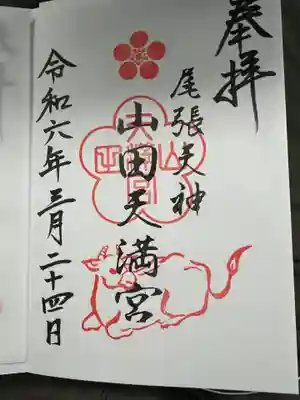 奉拝
尾張天神
山田天満宮
令和六年三月二十四日